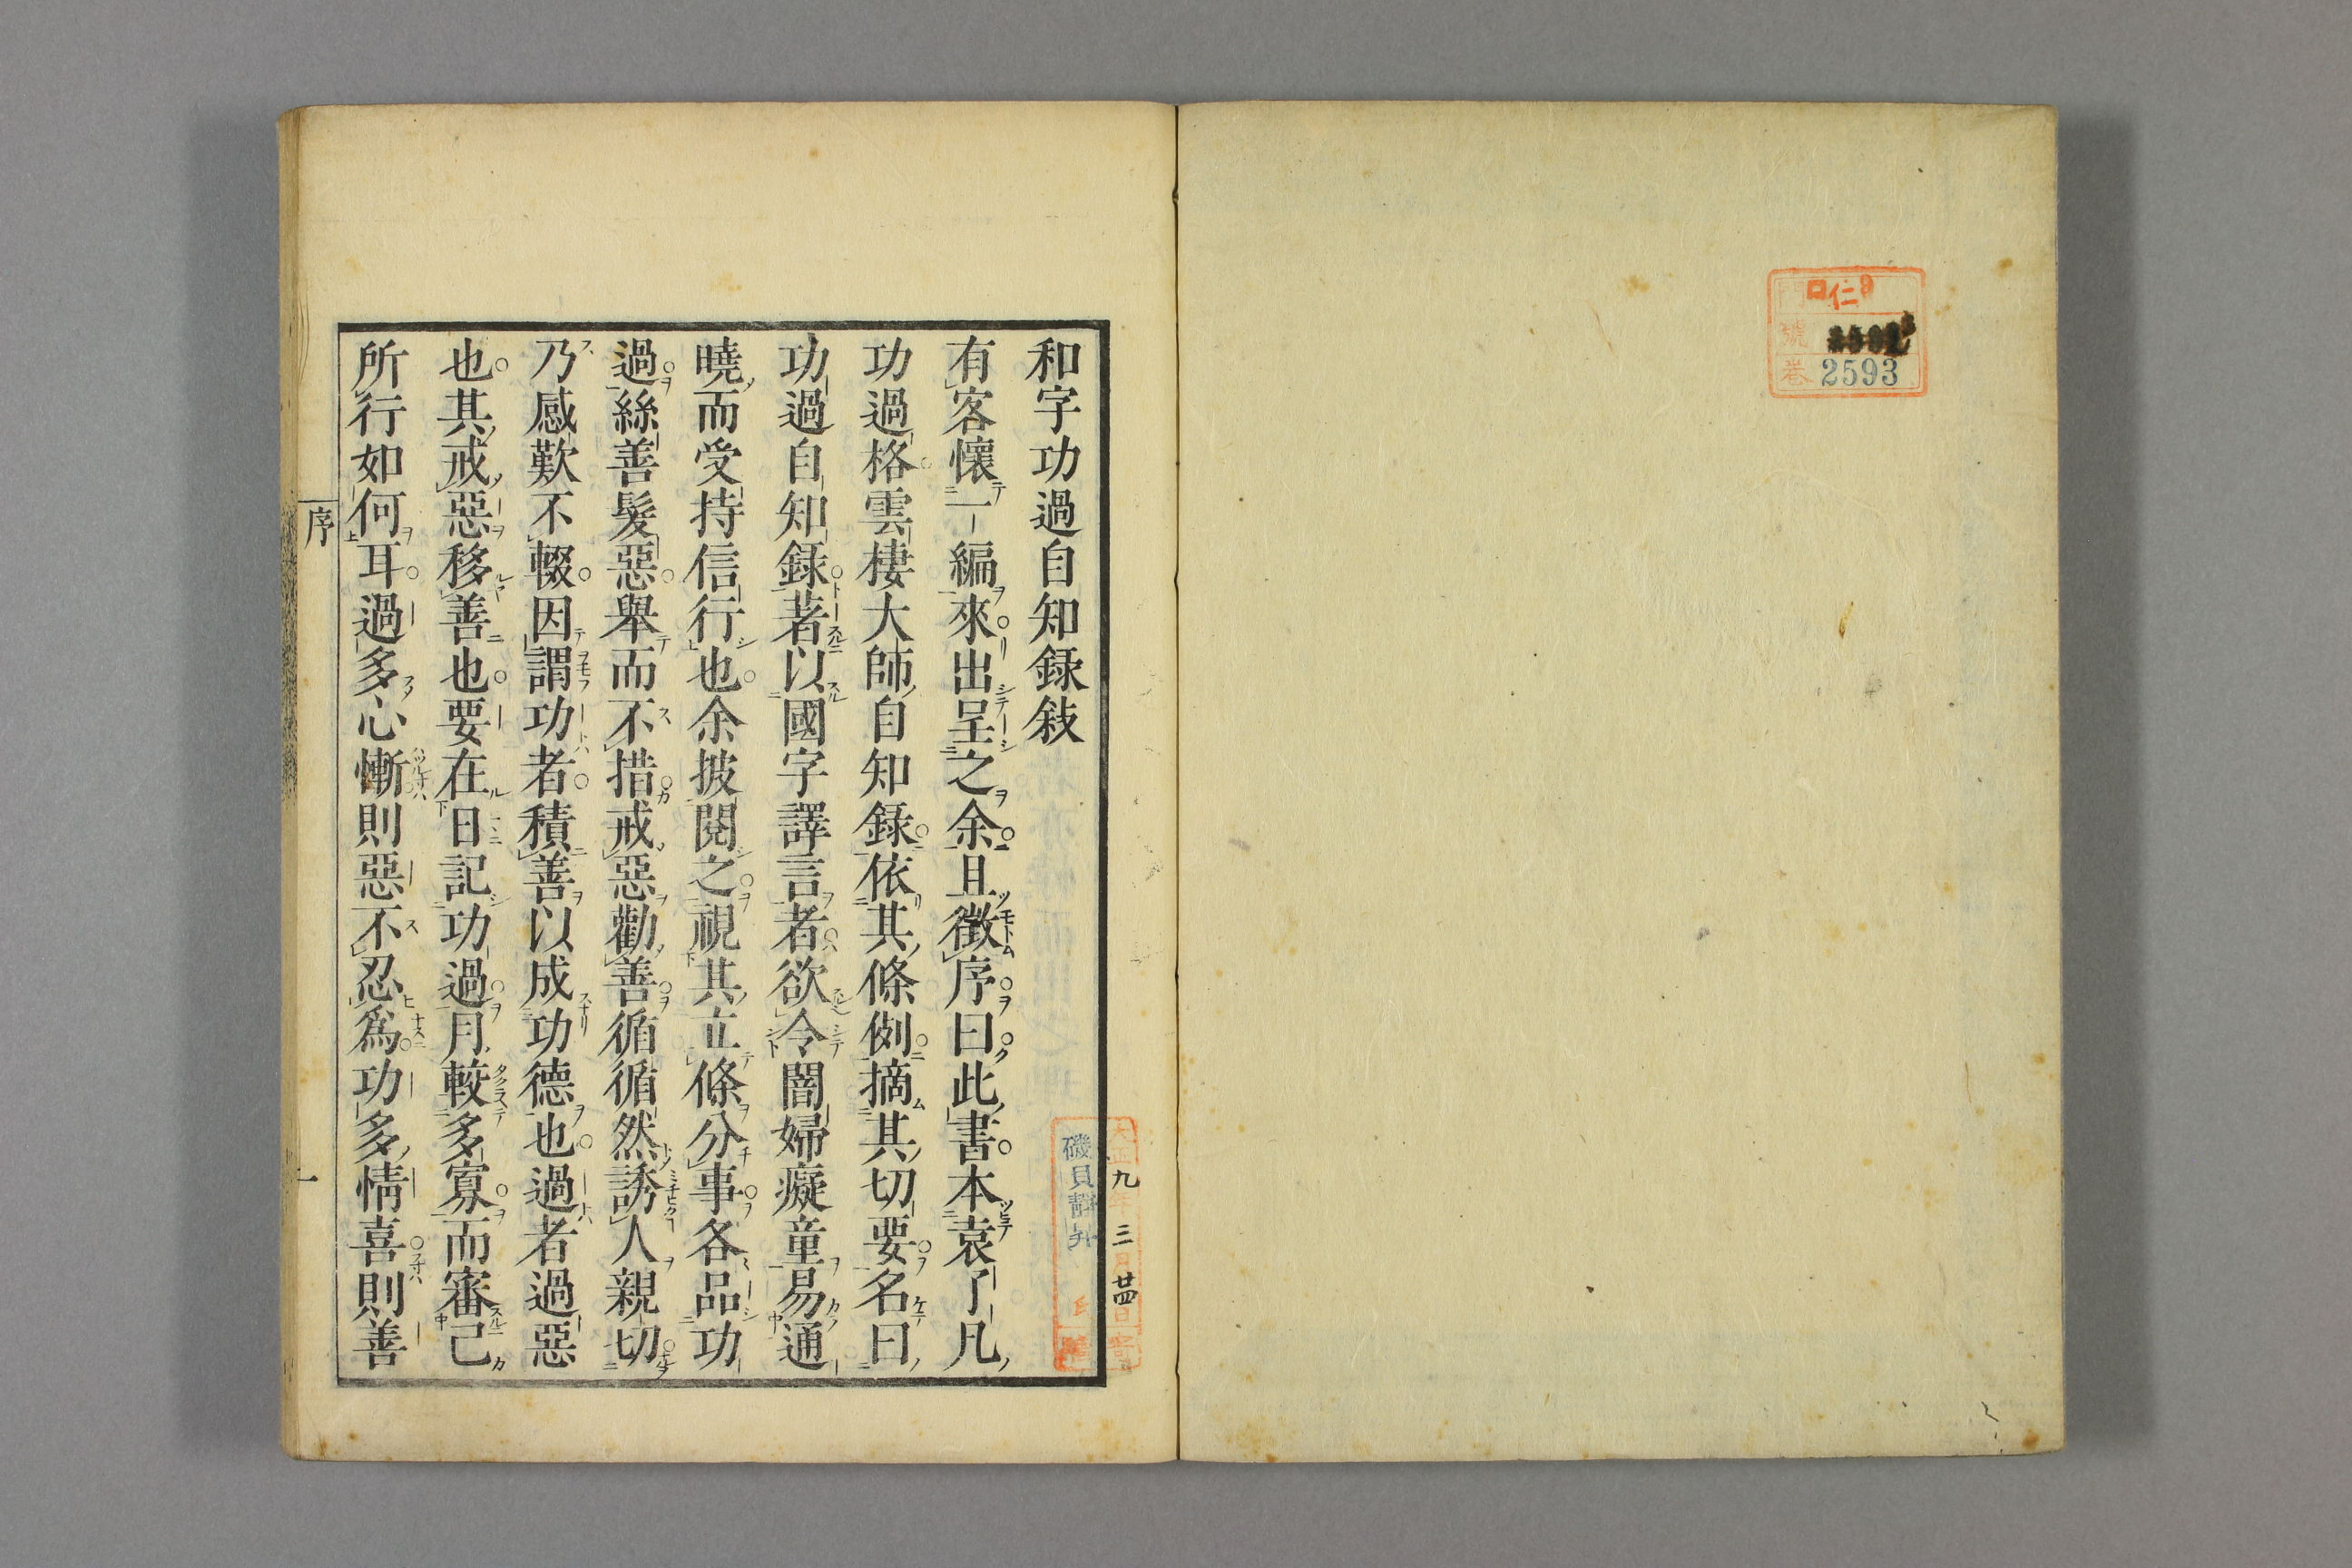 口仁9
號
卷 2593
和字功過自知録敍
有客懷一編來出呈之余且徴序曰此書本袁了凡
功過格雲棲大師自知録依其條例摘其切要名曰
功過自知録著以國字譯言者欲令闇婦癡童易通
曉而受持信行也余披閲之視其立條分事各品功
過絲善髮惡舉而不措戒惡勸善循循然誘人親切
乃感歎不輟因謂功者積善以成功德也過者過惡
也其戒惡移善也要在日記功過月較多寡而審己
所行如何耳過多心慚則惡不忍爲功多情喜則善
序
一
大正九年三月廿四日